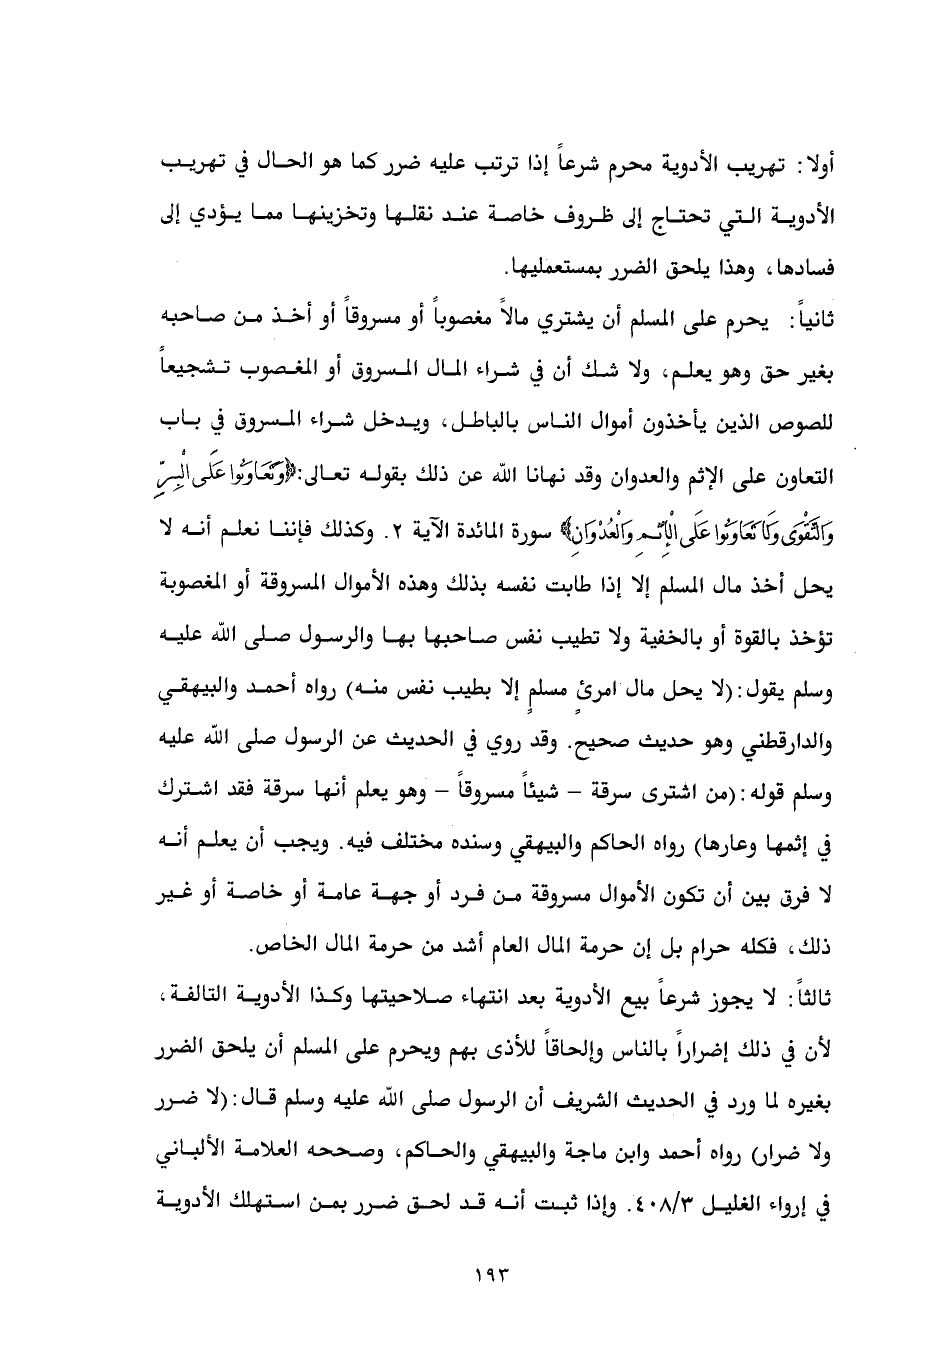 أولاً: تهريب الأدوية محرم شرعاً إذا ترتب عليه ضرر كما هو الحال في تهريب
الأدوية التي تحتاج إلى ظروف خاصة عند نقلها وتخزينها مما يؤدي إلى
فسادها، وهذا يلحق الضرر بمستعمليها.
ثانياً: يحرم على المسلم أن يشتري مالاً مغصوباً أو مسروقاً أو أخذ من صاحبه
بغير حق وهو يعلم، ولا شك أن في شراء المال المسروق أو المغصوب تشجيعاً
للصوص الذين يأخذون أموال الناس بالباطل، ويدخل شراء المسروق في باب
التعاون على الإثم والعدوان وقد نهانا الله عن ذلك بقوله تعالى:﴿وَتَعَاوَنُوا عَلَى الْبِرِّ
وَالتَّقْوَى وَلَا تَعَاوَنُوا عَلَى الْإِثْمِ وَالْعُدْوَانِ﴾ سورة المائدة الآية ٢. وكذلك فإننا نعلم أنه لا
يحل أخذ مال المسلم إلا إذا طابت نفسه بذلك وهذه الأموال المسروقة أو المغصوبة
تؤخذ بالقوة أو بالخفية ولا تطيب نفس صاحبها بها والرسول صلى الله عليه
وسلم يقول:(لا يحل مال امرئٍ مسلمٍ إلا بطيب نفسٍ منه) رواه أحمد والبيهقي
والدارقطني وهو حديث صحيح. وقد روي في الحديث عن الرسول صلى الله عليه
وسلم قوله:(من اشترى سرقة – شيئاً مسروقاً – وهو يعلم أنها سرقة فقد اشترك
في إثمها وعارها) رواه الحاكم والبيهقي وسنده مختلف فيه. ويجب أن يعلم أنه
لا فرق بين أن تكون الأموال مسروقة من فرد أو جهة عامة أو خاصة أو غير
ذلك، فكله حرام بل إن حرمة المال العام أشد من حرمة المال الخاص.
ثالثاً: لا يجوز شرعاً بيع الأدوية بعد انتهاء صلاحيتها وكذا الأدوية التالفة،
لأن في ذلك إضراراً بالناس وإلحاقاً للأذى بهم ويحرم على المسلم أن يلحق الضرر
بغيره لما ورد في الحديث الشريف أن الرسول صلى الله عليه وسلم قال:(لا ضرر
ولا ضرار) رواه أحمد وابن ماجة والبيهقي والحاكم، وصححه العلامة الألباني
في إرواء الغليل ٤٠٨/٣. وإذا ثبت أنه قد لحق ضرر بمن استهلك الأدوية
١٩٣